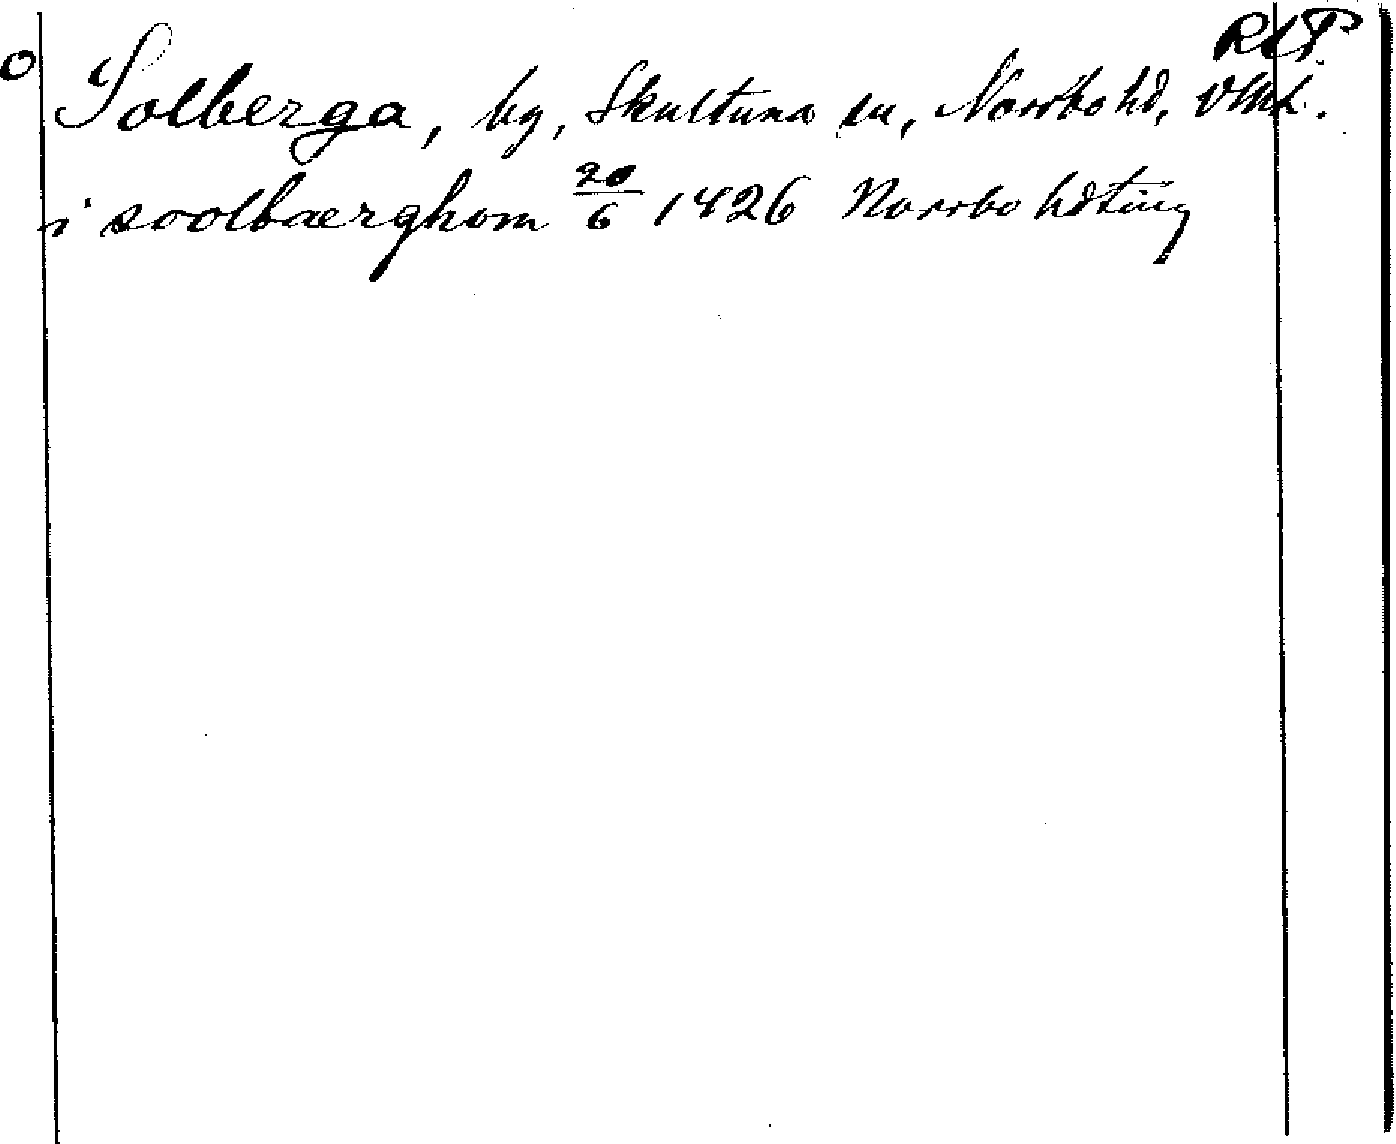 RAP.
o Solberga, by, Skultuna sn, Norrbo hd, Vstml.
i soolbærghom 20/6 1426 Norrbo hdsting